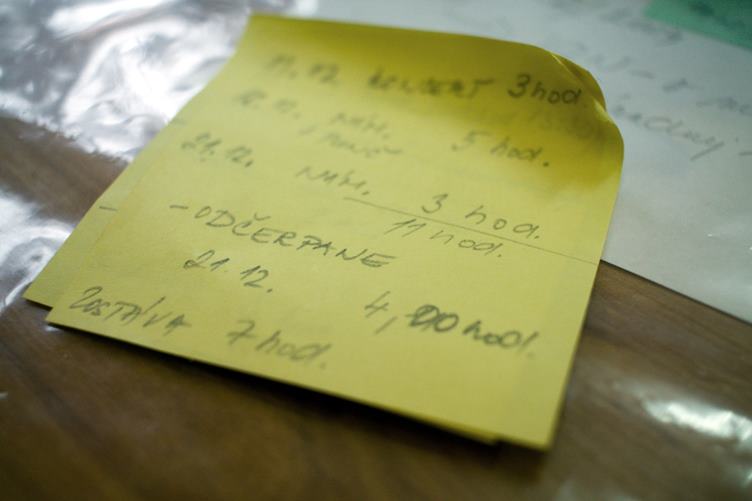 11.12. KONCERT 3 hod.
12.12. NÁM. 5 hod.
21.12. NÁM. 3 hod.
11 hod.
- ODČERPANE
21.12. 4,00 hod.
ZOSTÁVA 7 hod.